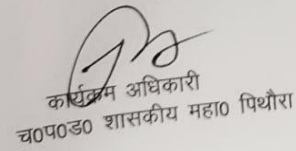 कार्यक्रम अधिकारी
च०प०ड० शासकीय महा० पिथौरा